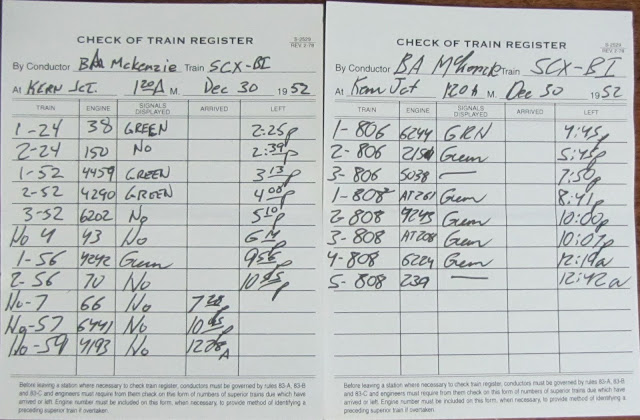 S-2529
REV. 2-78
CHECK OF TRAIN REGISTER
By Conductor BA McKenzie Train SCX-BI
At KERN JCT. 120A M. Dec 30 1952
TRAIN ENGINE SIGNALS DISPLAYED ARRIVED LEFT
1-24 38 GREEN 2:25p
2-24 150 No 2:39p
1-52 4459 GREEN 3 13p
2-52 4290 GREEN 4 08p
3-52 6202 No 5 10p
No 4 43 No
1-56 4242 Green 9 56p
2-56 70 No 10 45p
No-7 66 No 7 28p
No-57 6441 No 10 45p
No-59 4193 No 12 08 A
Before leaving a station where necessary to check train register, conductors must be governed by rules 83-A, 83-B
and 83-C and engineers must require from them check on this form of numbers of superior trains due which have
arrived or left. Engine number must be included on this form, when necessary, to provide method of identifying a
preceding superior train if overtaken.
S-2529
REV. 2-78
CHECK OF TRAIN REGISTER
By Conductor BA Train SCX-BI
At Kern Jct 120A M. Dec 30 1952
TRAIN ENGINE SIGNALS DISPLAYED ARRIVED LEFT
1-806 6244 GRN 4:45p
2-806 Green 5:45p
3-806 5038 — 7:50p
1-808 AT261 Green 8:41p
2-808 4243 Green 10:00p
3-808 AT208 Green 10:07p
4-808 6224 Green 12:19a
5-808 239 — 12:42a
Before leaving a station where necessary to check train register, conductors must be governed by rules 83-A, 83-B
and 83-C and engineers must require from them check on this form of numbers of superior trains due which have
arrived or left. Engine number must be included on this form, when necessary, to provide method of identifying a
preceding superior train if overtaken.